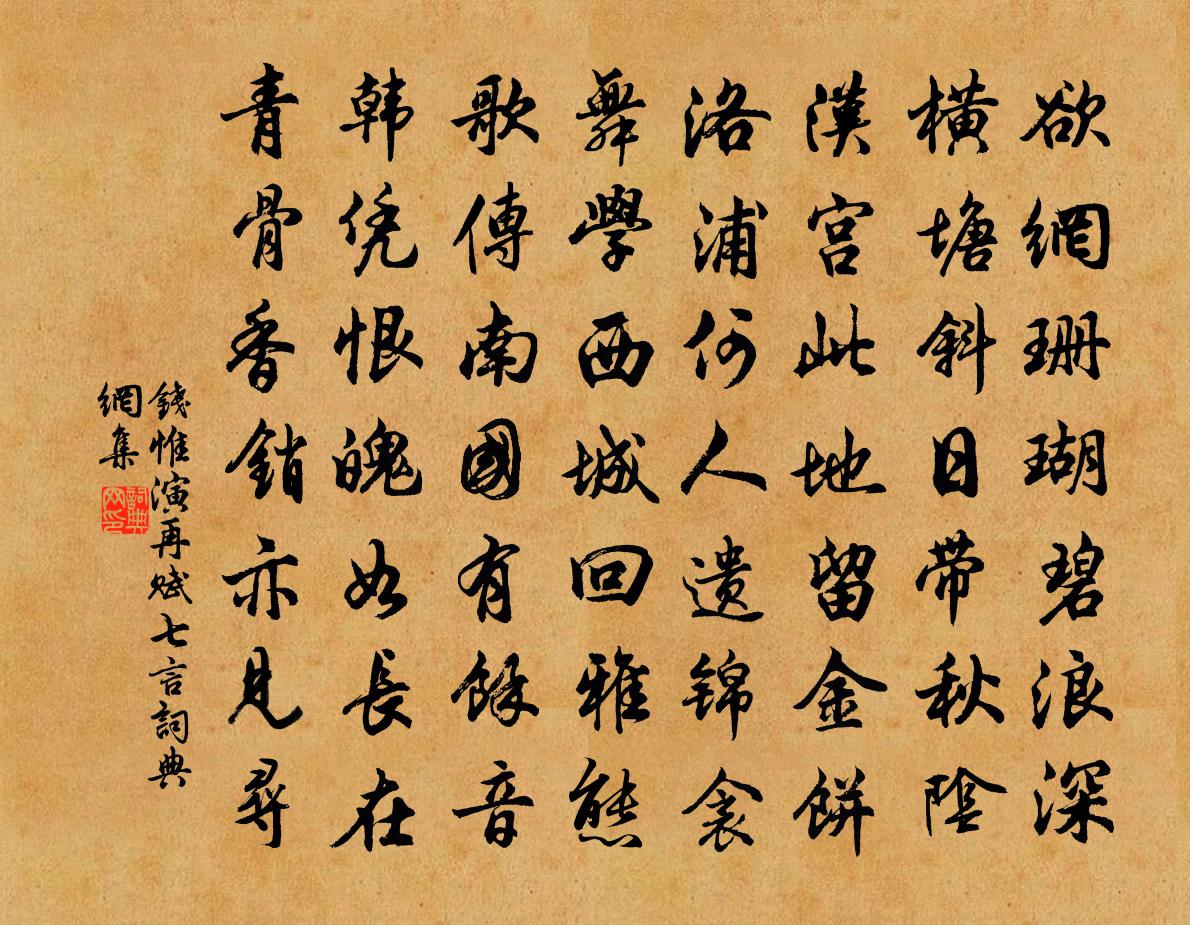 欲網珊瑚碧浪深
横塘斜日带秋陰
漢宫此地留金餅
洛浦何人遗锦衾
舞學西城回雅態
歌傳南國有餘音
韩凭恨魄如長在
青骨香銷亦見尋
錢惟演再赋七言詞典
網集
詞典网印